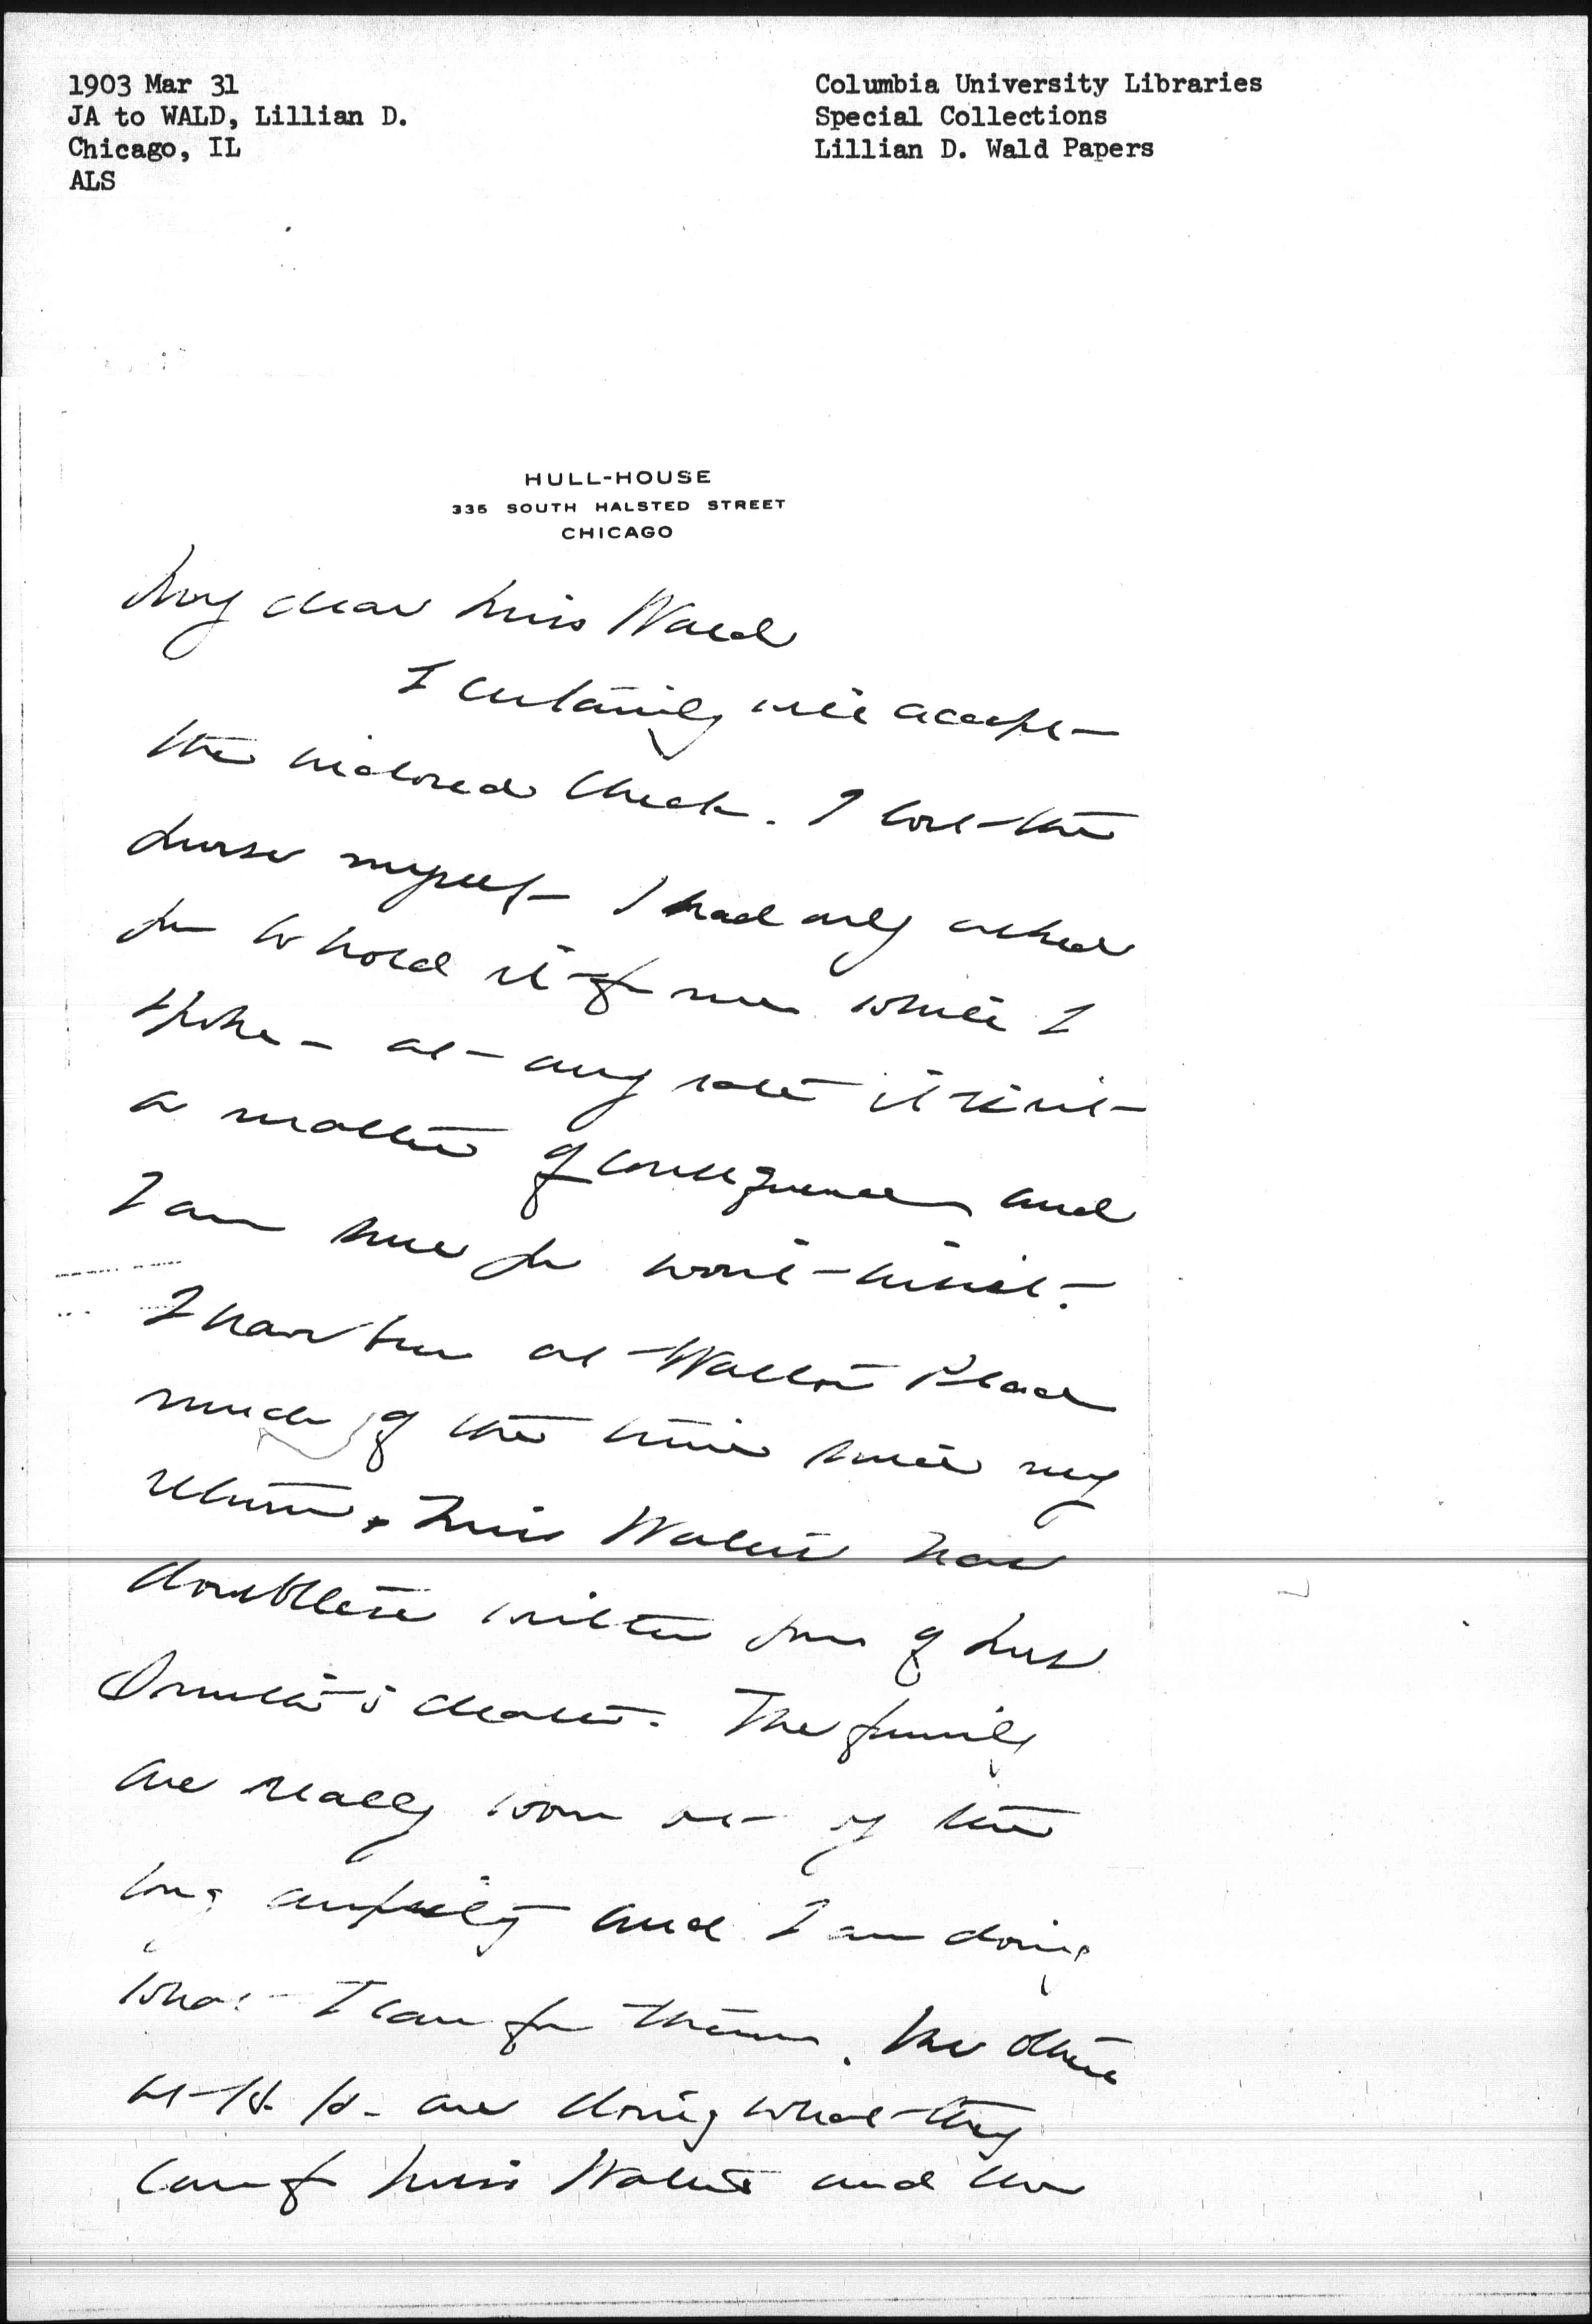 1903 Mar 31
JA to WALD, Lillian D.
Chicago, IL
ALS
Columbia University Libraries
Special Collections
Lillian D. Wald Papers
HULL-HOUSE
335 SOUTH HALSTED STREET
CHICAGO
My dear Miss Wald
I certainly will accept
the inclosed check. I lost the
purse myself - I had only asked
you to hold it for me while I
spoke - at any rate it isn't
a matter of consequence and
I am sure you won't insist.
I have been at Walton Place
much of the time since my
return. Miss Waters has
doubtless written you of Mrs
Smith's death. The family
are really worn out by the
long anxiety and I am doing
what I can for them. The others
at H. H. are doing what they
can for Miss Waters and